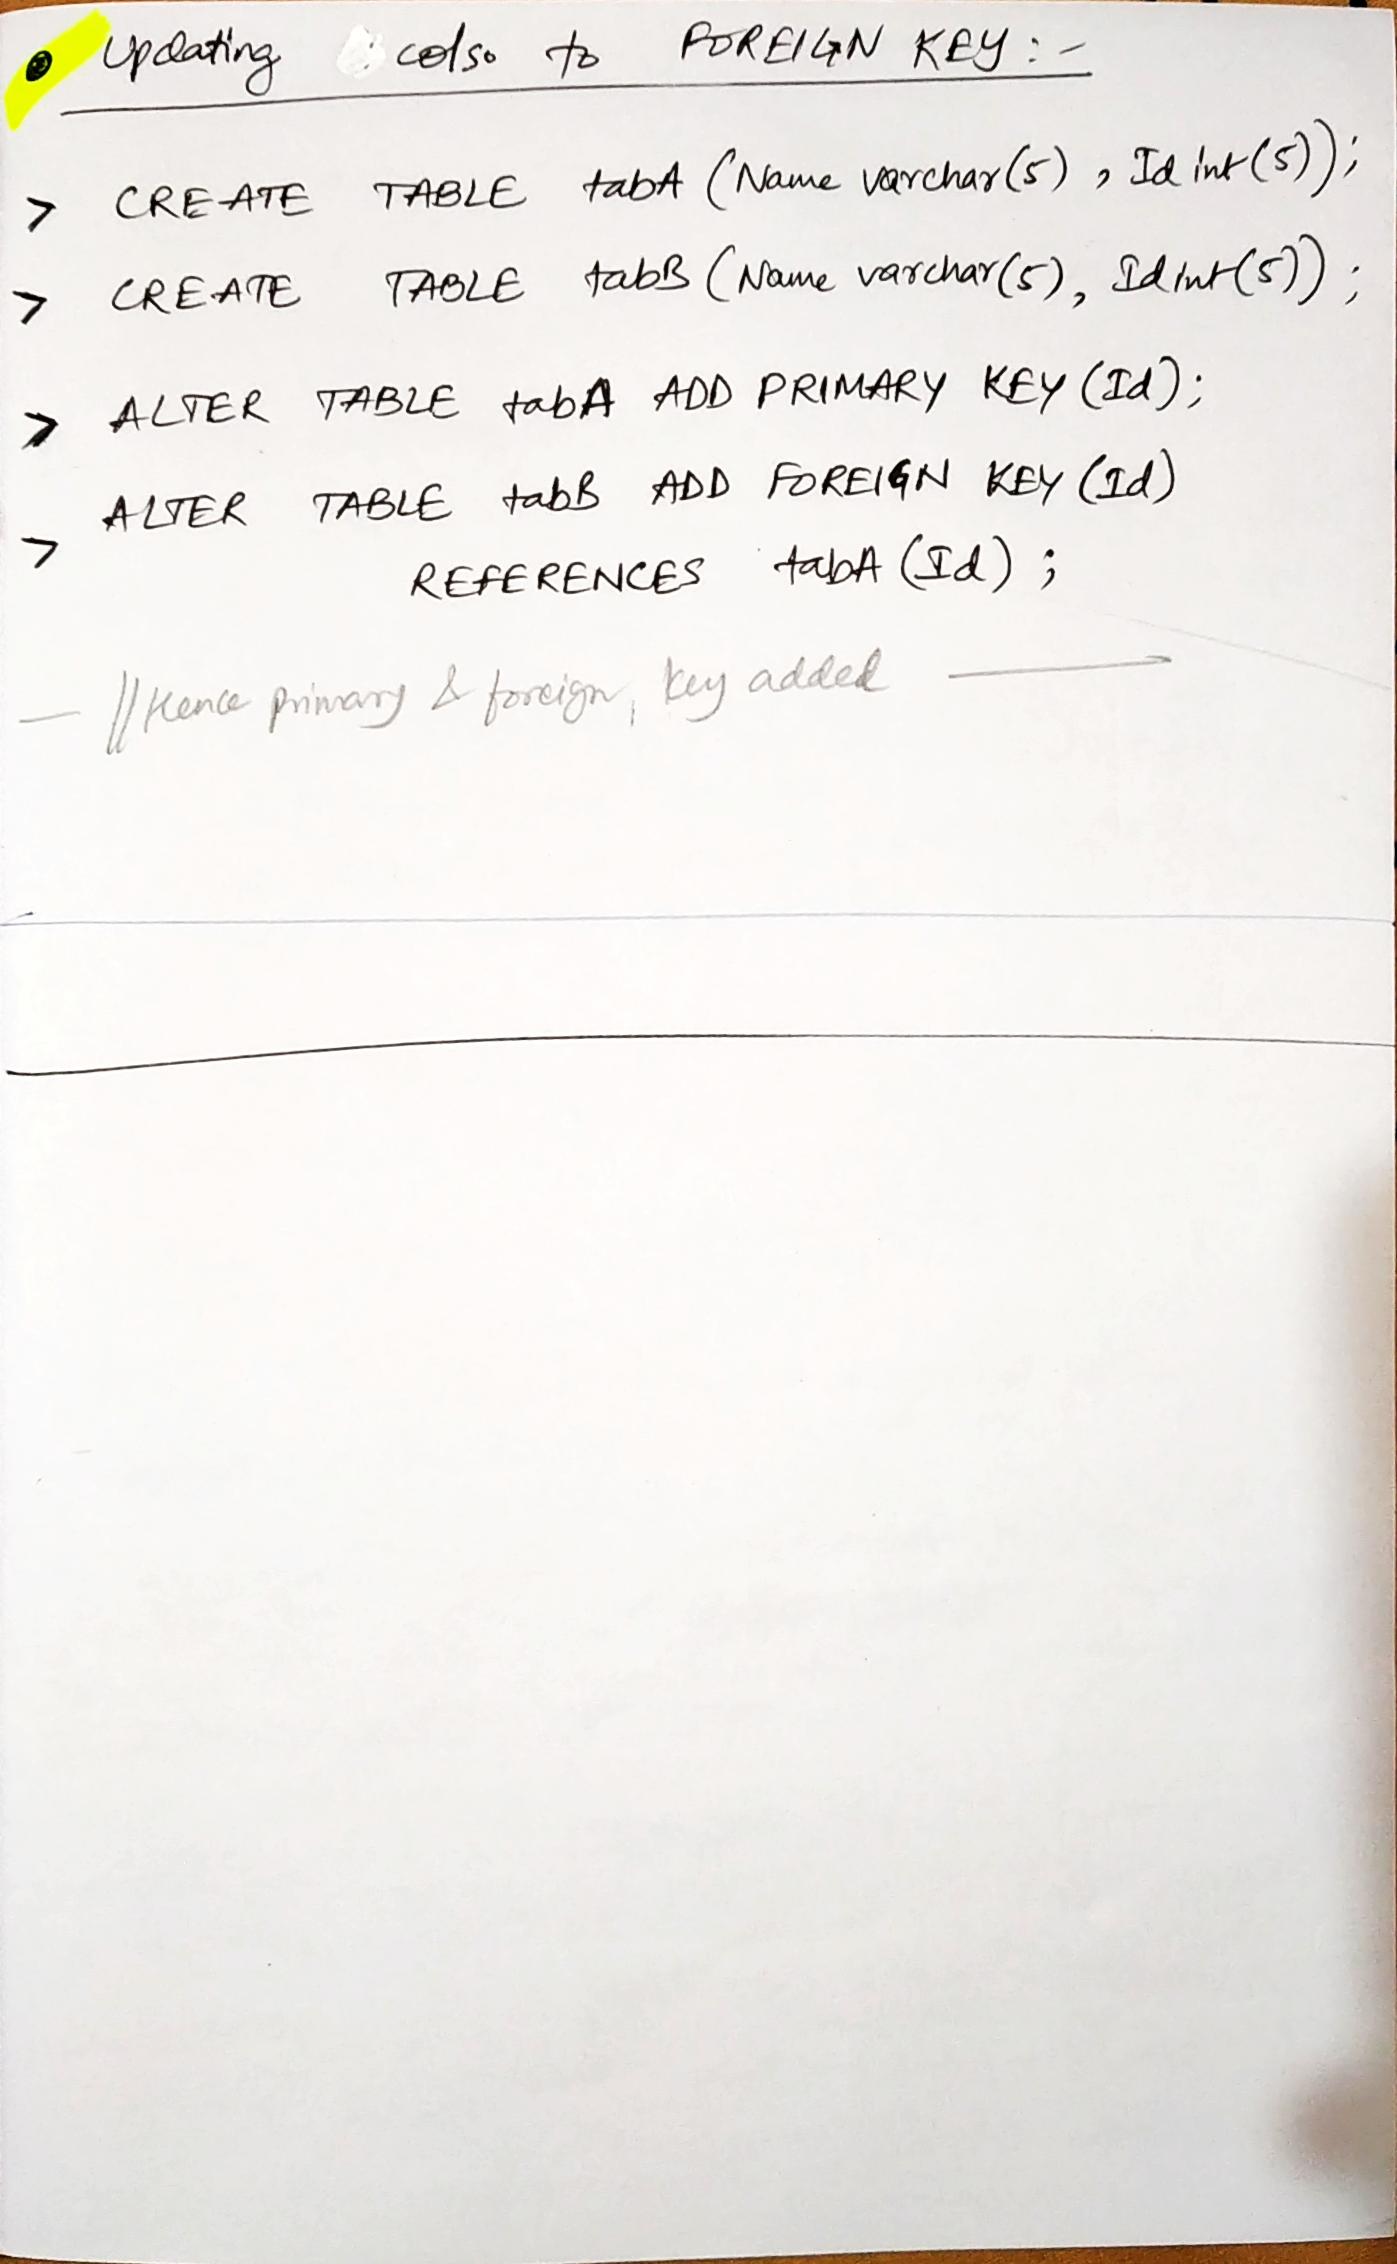 Updating cols. to FOREIGN KEY :-
> CREATE TABLE tabA (Name varchar(5) , Id int(5));
> CREATE TABLE tabB (Name varchar(5), Id int(5)) ;
> ALTER TABLE tabA ADD PRIMARY KEY (Id);
> ALTER TABLE tabB ADD FOREIGN KEY (Id)
REFERENCES tabA (Id) ;
— // Hence primary & foreign, key added —